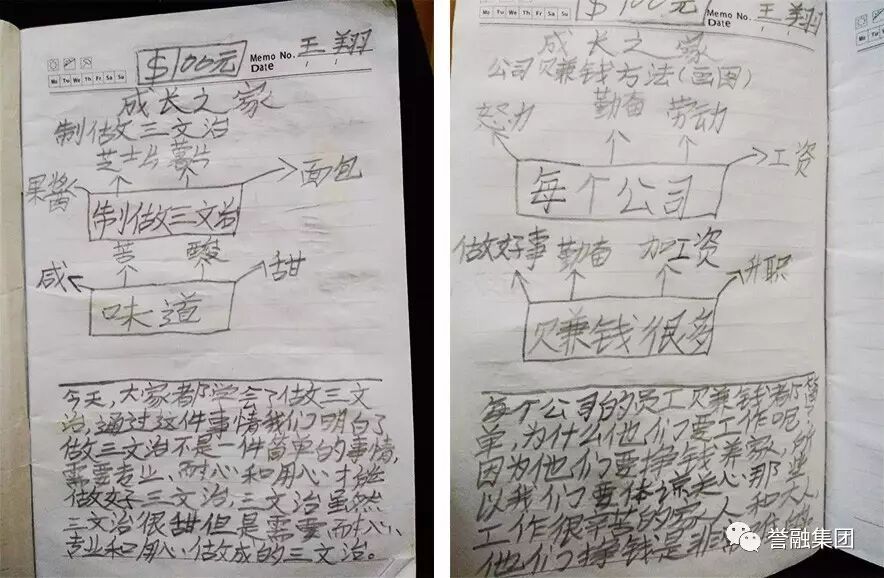 $100元
Memo No. 王翔
Date
Mo Tu We Th Fr Sa Su
成长之家
制做三文治
芝士片 薯片
果酱 面包
制做三文治
苦 酸
咸 甜
味道
今天,大家都学会了做三文
治,通过这件事情我们明白了
做三文治不是一件简单的事情,
需要专业、耐心和用心才能
做好三文治,三文治虽然
三文治很甜但是需要耐心、
专业和用心做成的三文治。
$100元
Memo No. 王翔
Date
Mo Tu We Th Fr Sa Su
成长之家
公司赚钱方法(画图)
努力 勤奋 劳动
工资
每个公司
做好事 勤奋 加工资
升职
赚钱很多
每个公司的员工赚钱都不简
单,为什么他们要工作呢,
因为他们要挣钱养家,所
以我们要体谅关心那些
工作很辛苦的家人和大人,
他们挣钱是非常
誉融集团